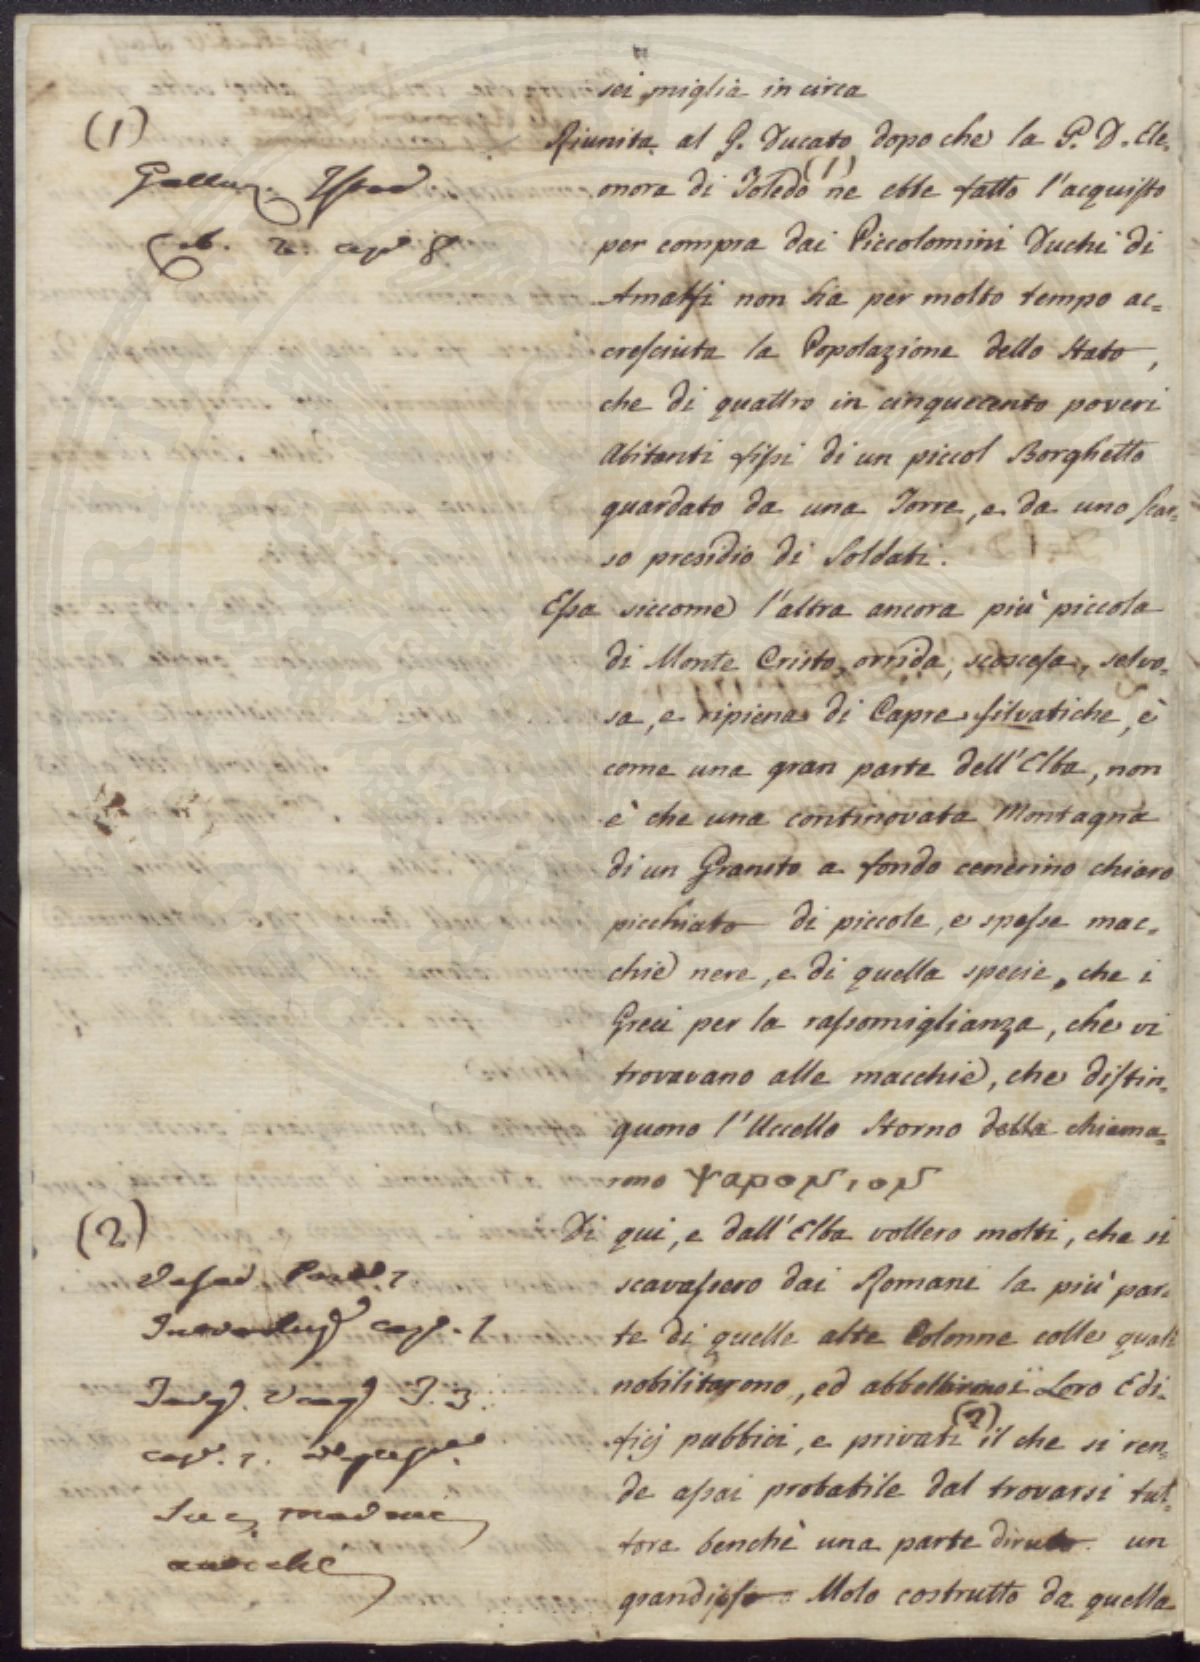 sei miglia in circa
Riunita al G. Ducato dopo che la G. D. Ele-
onora di Toledo (1) ne ebbe fatto l'acquisto
per compra dai Piccolomini Duchi di
Amalfi non ha per molto tempo ac=
cresciuta la Popolazione dello Stato,
che di quattro in cinquecento poveri
Abitanti fissi di un piccol Borghetto
guardato da una Torre, e da uno scar=
so presidio di Soldati.
Essa siccome l'altra ancora più piccola
di Monte Cristo, orrida, scoscesa, selvo=
sa, e ripiena di Capre silvatiche, è
come una gran parte dell'Elba, non
è che una continovata Montagna
di un Granito a fondo cenerino chiaro
picchiato di piccole, e spesse mac=
chie nere, e di quella specie, che i
Greci per la rassomiglianza, che vi
trovavano alle macchie, che distin=
guono l'Uccello Storno della chiama=
rono ψαρονιον
Di qui, e dall'Elba vollero molti, che si
scavassero dai Romani la più par=
te di quelle alte Colonne colle quali
nobilitarono, ed abbellirono i Loro Edi=
ficj pubbici, e privati (2) il che si ren=
de assai probabile dal trovarsi tut=
tora benchè una parte diruto un
grandioso Molo costrutto da quella
(1)
Galluz. Istor
Lib. 2. cap. 8.
(2)
cap. 1
T. 3.
cap. 7.